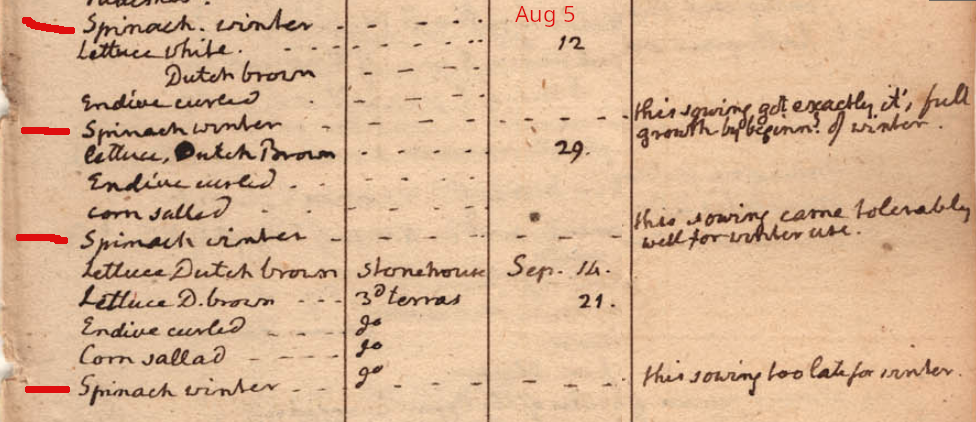 Aug 5
Spinach. winter - - - - -
Lettuce white. - - - - - - 12
Dutch brown - - - -
Endive curled - - - -
this sowing got exactly it's full
Spinach winter - - - - - - - growth by beginng. of winter.
Lettuce, Dutch Brown - - - - 29.
Endive curled - - - - -
corn sallad - - - - -
this sowing came tolerably
Spinach winter - - - - - - - well for winter use.
Lettuce Dutch brown stonehouse Sep. 14.
Lettuce D. brown - - - 3d terras 21.
Endive curled - - - - do
Corn sallad - - - - do
Spinach winter - - - do - - - - - - this sowing too late for winter.